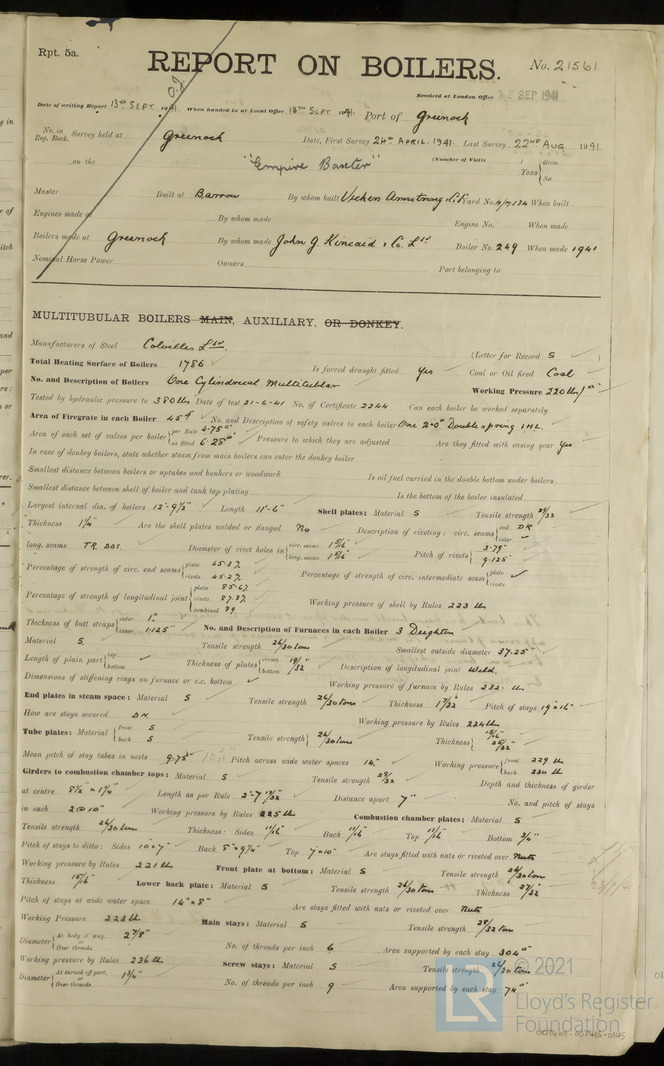 Rpt. 5a.
REPORT ON BOILERS.
No. 21561
Received at London Office SEP 1941
Date of writing Report 13TH SEPT 1941. When handed in at Local Office 13TH SEPT 1941. Port of Greenock
No. in Reg. Book. Survey held at Greenock Date, First Survey 24TH APRIL. 1941. Last Survey 22ND AUG 1941.
on the "Empire Baxter" (Number of Visits ) Tons { Gross Net
Master Built at Barrow By whom built Vickers Armstrong Ltd Yard No. When built
Engines made at By whom made Engine No. When made
Boilers made at Greenock By whom made John G. Kincaid & Co. Ltd Boiler No. 249 When made 1941
Nominal Horse Power Owners Port belonging to
MULTITUBULAR BOILERS MAIN, AUXILIARY, OR DONKEY.
Manufacturers of Steel Colvilles Ltd. (Letter for Record S )
Total Heating Surface of Boilers 1786 Is forced draught fitted Yes Coal or Oil fired Coal
No. and Description of Boilers One Cylindrical Multitubular Working Pressure 220 lbs/□"
Tested by hydraulic pressure to 380 lbs Date of test 21-6-41 No. of Certificate 2244 Can each boiler be worked separately
Area of Firegrate in each Boiler 45 No. and Description of safety valves to each boiler One 2·0" Double spring I.H.L.
Area of each set of valves per boiler { per Rule 4·75 as fitted 6·28 Pressure to which they are adjusted Are they fitted with easing gear Yes
In case of donkey boilers, state whether steam from main boilers can enter the donkey boiler
Smallest distance between boilers or uptakes and bunkers or woodwork Is oil fuel carried in the double bottom under boilers
Smallest distance between shell of boiler and tank top plating Is the bottom of the boiler insulated
Largest internal dia. of boilers 12'-9½" Length 11'-6" Shell plates: Material S Tensile strength 29/33
Thickness 1¼" Are the shell plates welded or flanged No Description of riveting: circ. seams { end DR inter.
long. seams TR DBS. Diameter of rivet holes in { circ. seams 1 5/16" long. seams 1 5/16" Pitch of rivets { 3·79" 9·125"
Percentage of strength of circ. end seams { plate 65·3% rivets 45·2% Percentage of strength of circ. intermediate seam { plate rivets
Percentage of strength of longitudinal joint { plate 85·6% rivets 87·8% combined 89 Working pressure of shell by Rules 223 lb
Thickness of butt straps { outer 1" inner 1·125" No. and Description of Furnaces in each Boiler 3 Deighton
Material S Tensile strength 26/30 tons Smallest outside diameter 37·25"
Length of plain part { top bottom Thickness of plates { crown bottom 19/32" Description of longitudinal joint Weld.
Dimensions of stiffening rings on furnace or c.c. bottom Working pressure of furnace by Rules 232 lb
End plates in steam space: Material S Tensile strength 26/30 tons Thickness 1 7/32" Pitch of stays 19" x 16"
How are stays secured DN Working pressure by Rules 224 lb
Tube plates: Material { front S back S Tensile strength { 26/30 tons Thickness { 15/16" 25/32"
Mean pitch of stay tubes in nests 9·75" Pitch across wide water spaces 14" Working pressure { front 229 lb back 220 lb
Girders to combustion chamber tops: Material S Tensile strength 28/32 Depth and thickness of girder
at centre 8¼" x 1¼" Length as per Rule 2'-7 19/32" Distance apart 7" No. and pitch of stays
in each 2 @ 10" Working pressure by Rules 225 lb Combustion chamber plates: Material S
Tensile strength 26/30 ton Thickness: Sides 11/16" Back 11/16" Top 11/16" Bottom ¾"
Pitch of stays to ditto: Sides 10 x 7" Back 8" x 9¼" Top 7" x 10" Are stays fitted with nuts or riveted over Nuts
Working pressure by Rules 221 lb Front plate at bottom: Material S Tensile strength 26/30 ton
Thickness 15/16" Lower back plate: Material S Tensile strength 26/30 tons Thickness 27/32"
Pitch of stays at wide water space 14" x 8" Are stays fitted with nuts or riveted over Nuts
Working Pressure 223 lb Main stays: Material S Tensile strength 28/32 ton
Diameter { At body of stay, or Over threads 2 7/8" No. of threads per inch 6 Area supported by each stay 304"
Working pressure by Rules 236 lb Screw stays: Material S Tensile strength 26/30 tons
Diameter { At turned off part, or Over threads 1¾" No. of threads per inch 9 Area supported by each stay 74"
© 2021
Lloyd's Register
Foundation
LR